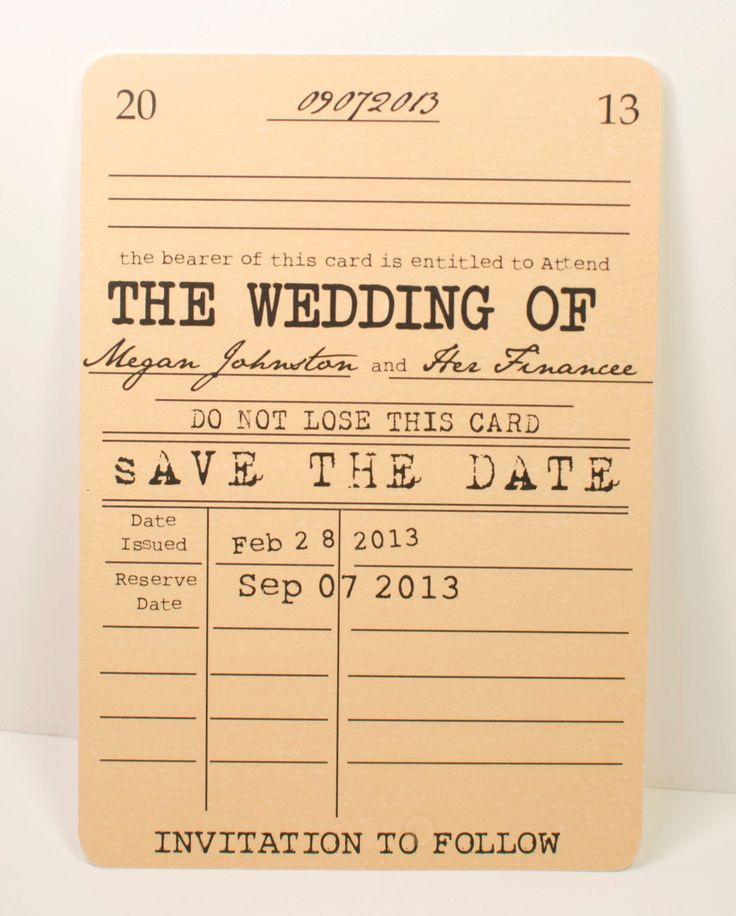 20 09072013 13
the bearer of this card is entitled to Attend
THE WEDDING OF
Megan Johnston and Her Financee
DO NOT LOSE THIS CARD
SAVE THE DATE
Date Issued Feb 28 2013
Reserve Date Sep 07 2013
INVITATION TO FOLLOW